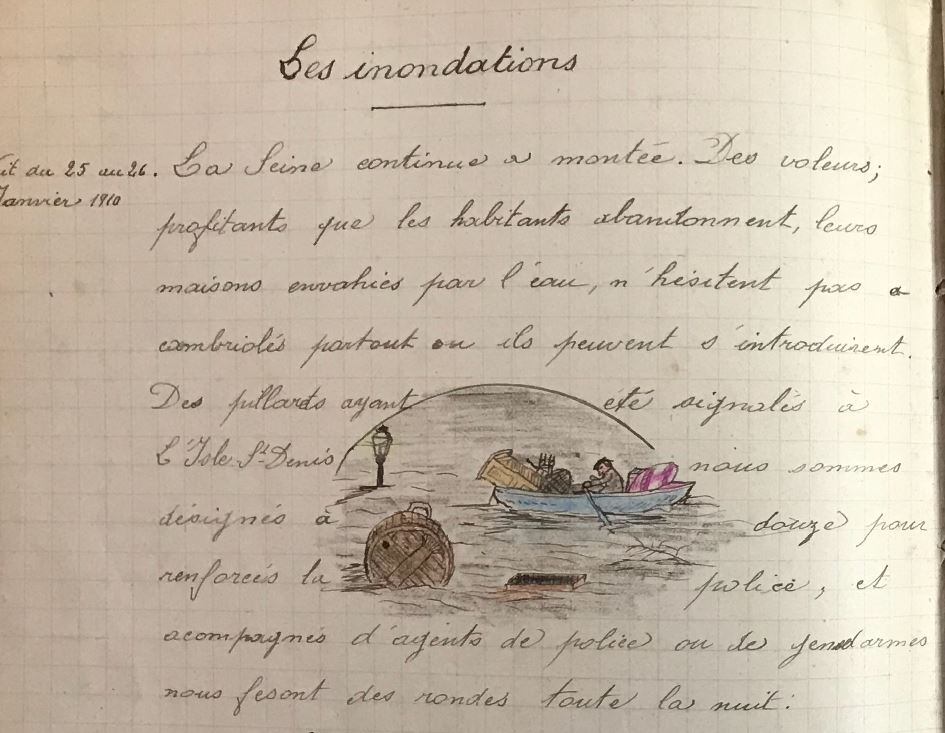 Les inondations
du 25 au 26.
Janvier 1910
La Seine continue a montée. Des voleurs;
profitants que les habitants abandonnent, leurs
maisons envahies par l'éau, n'hésitent pas a
cambriolés partout ou ils peuvent s'introduirent.
Des pillards ayant été signalés à
L'Isle St Denis nous sommes
désignés à douze pour
renforcés la police, et
acompagnés d'agents de police ou de gendarmes
nous fesont des rondes toute la nuit.